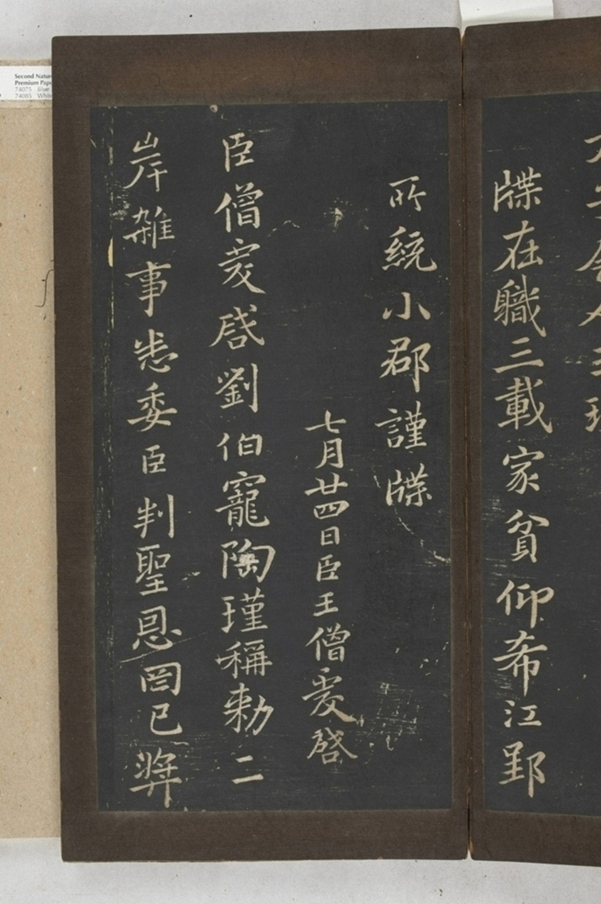 牒在職三載家貧仰希江郢
所統小郡謹牒
七月廿四日臣王僧虔啓
臣僧虔啓劉伯寵陶瑾稱勅二
岸雜事悉委臣判聖恩罔已奬
Second Natur
Premium Pap
74075
74085